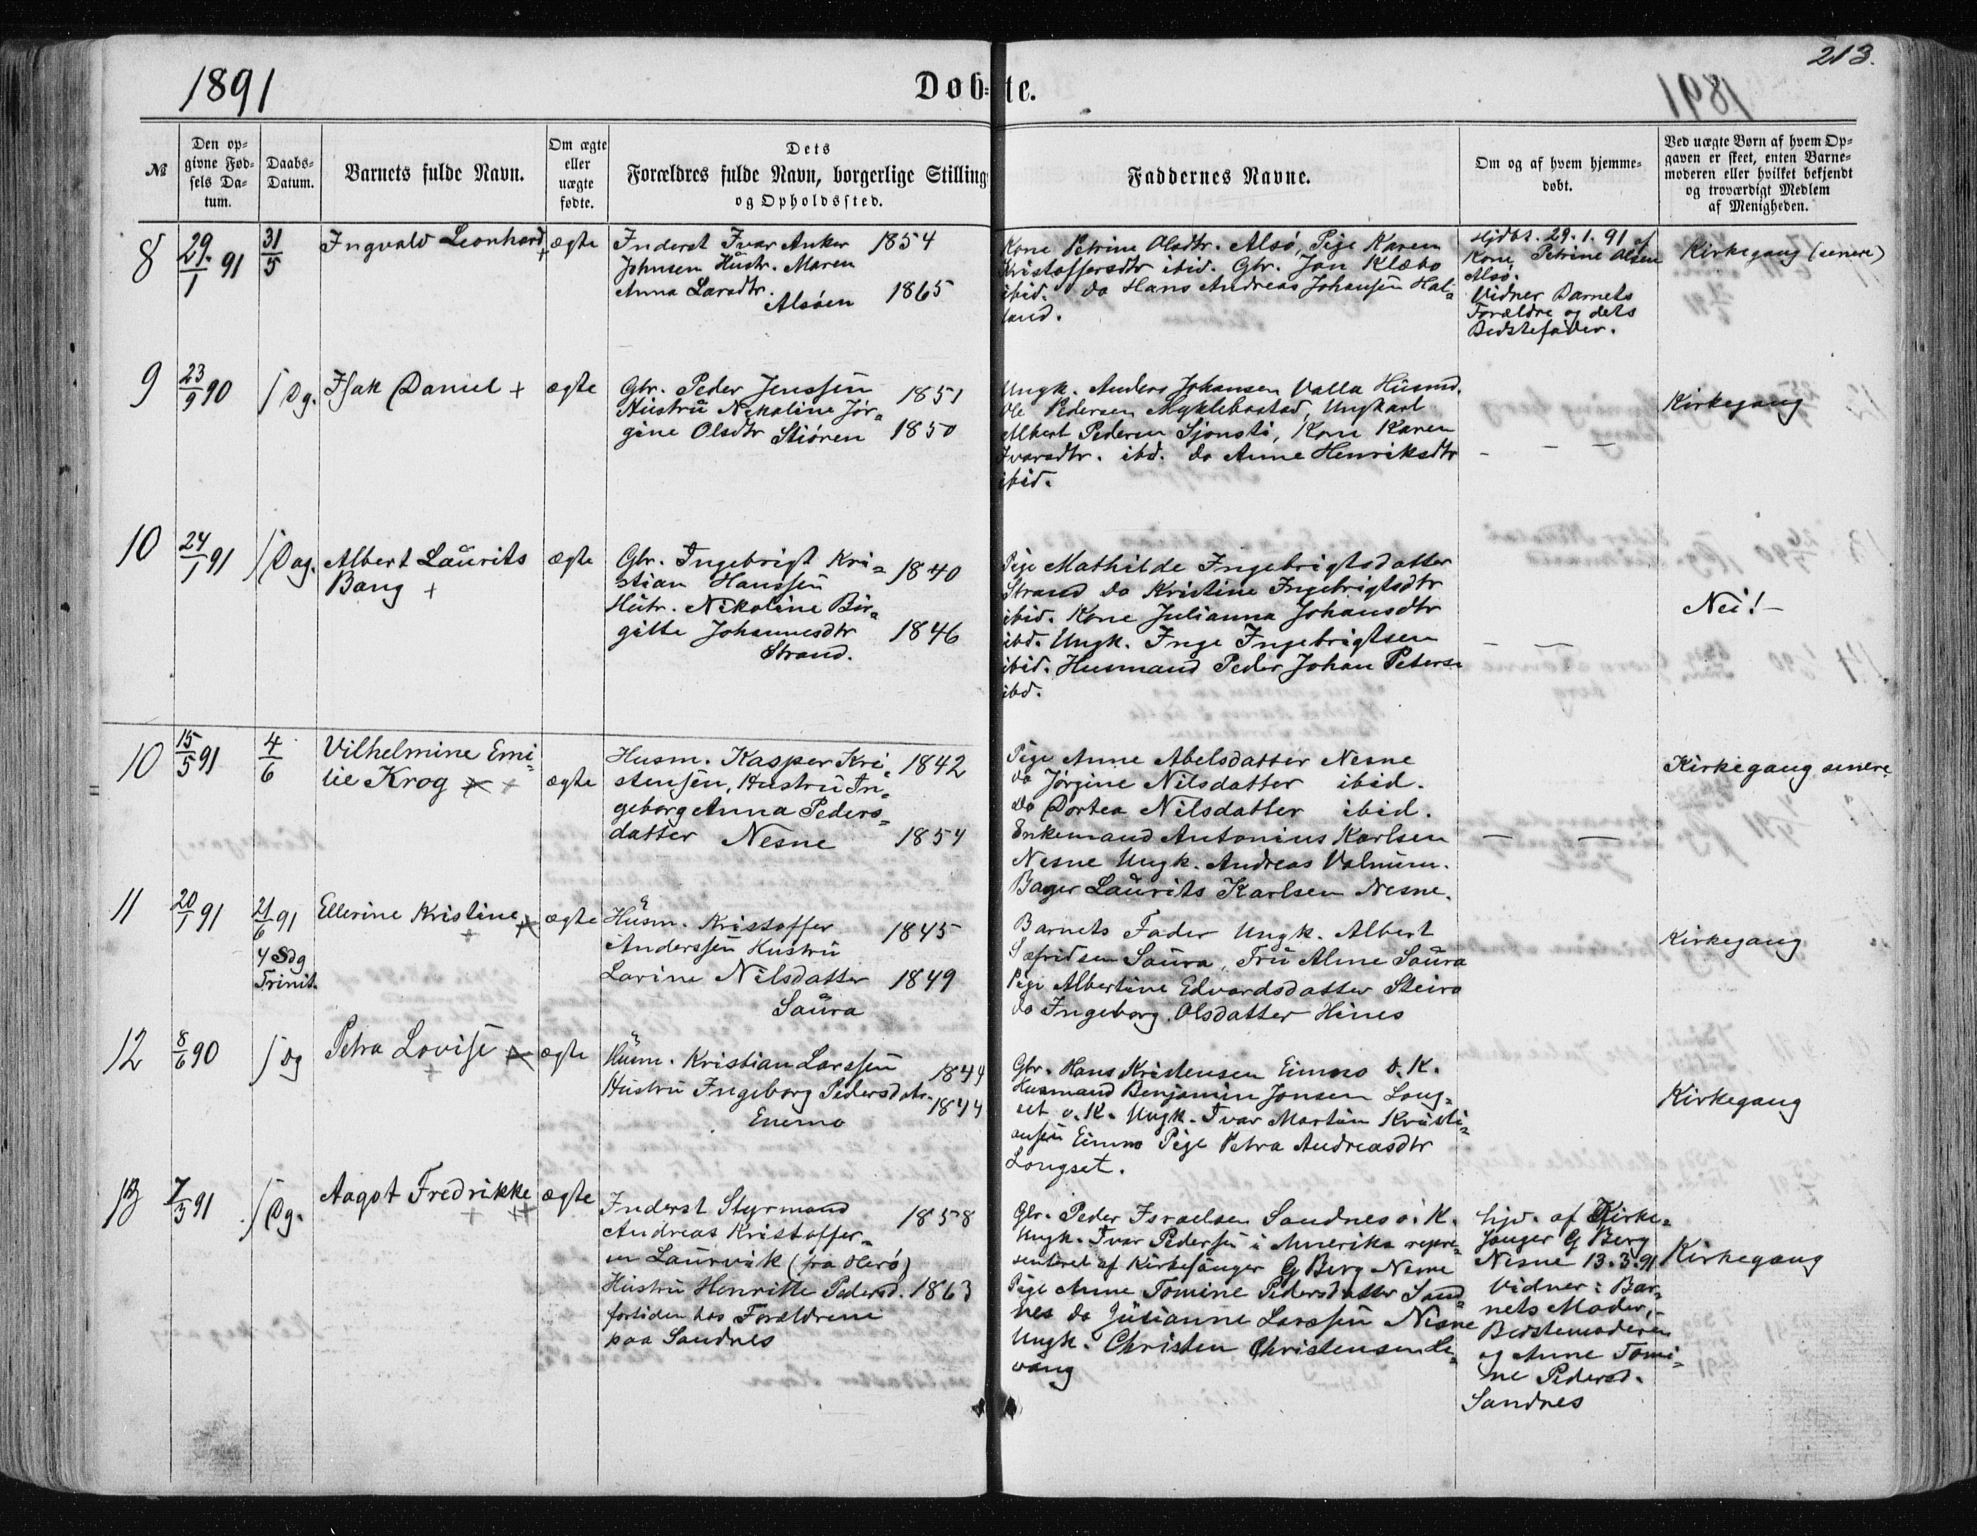 213.
1891
Døbte.
1891
№
Den opgivne Fødsels Datum.
Daabs-Datum.
Barnets fulde Navn.
Om ægte eller uægte fødte.
Dets Forældres fulde Navn, borgerlige Stilling og Opholdssted.
Faddernes Navne.
Om og af hvem hjemmedøbt.
Ved uægte Børn af hvem Opgaven er skeet, enten Barnemoderen eller hvilket bekjendt og troværdigt Medlem af Menigheden.
8
29/1 91
31/5
Ingvald Leonhard +
ægte
Inderst Ivar Anker 1854
Johnsen Hustr. Maren
Anna Larsdtr.
Alsøen 1865
Kone Petrine Olsdtr. Alsø, Pige Karen
Kristoffersdtr ibid. Gbr. Jon Klæbo
ibid. do Hans Andreas Johansen Hal-
land.
Hjdbt. 29.1.91 af
Kone Petrine Olsen
Alsø.
Vidner Barnets
Forældre og dets
Bedstefader.
Kirkegang (senere)
9
23/9 90
S Dg.
Isak Daniel +
ægte
Gbr. Peder Jenssen 1851
Hustru Nikoline Jør-
gine Olsdtr Stiören 1850
Ungk. Anders Johansen Valla Husmd.
Ole Pedersen Myklebostad, Ungkarl
Albert Pedersen Sjonsti, Kone Karen
Ivarsdtr. ibd. do Anne Henriksdtr
ibid.
- -
Kirkegang
10
24/1 91
S Dag.
Albert Laurits
Bang +
ægte
Gbr. Ingebrigt Kri- 1840
stian Hanssen
Hutr. Nikoline Bir-
gitte Johannesdtr 1846
Strand.
Pige Mathilde Ingebrigtsdatter
Strand do Kristine Ingebrigtsdtr
ibid. Kone Julianna Johansdtr
ibd. Ungk. Inge Ingebrigtsen
ibid. Husmand Peder Johan Peters
ibd.
- -
Nei! -
10
15/5 91
4/6
Vilhelmine Emi-
lie Krog + +
ægte
Husm. Kasper Kri- 1842
stensen, Hustru In-
geborg Anna Peders-
datter Nesne 1854
Pige Anne Abelsdatter Nesne
do Jørgine Nilsdatter ibid.
do Dortea Nilsdatter ibid.
Enkemand Antonius Karlsen
Nesne Ungk. Andreas Valnum.
Bager Laurits Karlsen Nesne.
- -
Kirkegang senere
11
20/1 91
21/6 91
4 Sdg
Trinit.
Ellerine Kristine +
ægte
Husm. Kristoffer 1845
Anderssen Hustru
Lorine Nilsdatter 1849
Saura
Barnets Fader Ungk. Albert
Sæfridsen Saura, Fru Alme Saura
Pige Albertine Edvardsdatter Steiro
do Ingeborg Olsdatter Hines
Kirkegang
12
8/6 90
S Dg
Petra Lovise +
ægte
Husm. Kristian Larssen 1844
Hustru Ingeborg Pedersdatr. 1844
Enemo
Gbr. Hans Kristensen Eimo o. K.
Husmand Benjamin Jonsen Long-
set o. K. Ungk. Ivar Martin Kristi-
ansen Eimo Pige Petra Andreasdtr
Longset.
Kirkegang
13
7/3 91
S Dg.
Aagot Fredrikke
+ +
ægte
Inderst Styrmand 1858
Andreas Kristoffer-
en Laurvik (fra Herø)
Hustru Henritte Pedersd. 1863
fortiden hos Forældrene
paa Sandnes
Gbr. Peder Israelsen Sandnes o. K.
Ungk. Ivar Pedersen i Amerika repre-
senteret af Kirkesanger G Berg Nesne
Pige Anne Tomine Pedersdatter Sand-
nes do Julianne Larssen Nesne
Ungk. Christen Christensen Le-
vang
hjd. af Kirke-
sanger G Berg
Nesne 13.3.91
Vidner: Bar-
nets Moder,
Bedstemoderen
og Anne Tomi-
ne Pedersd.
Sandnes
Kirkegang